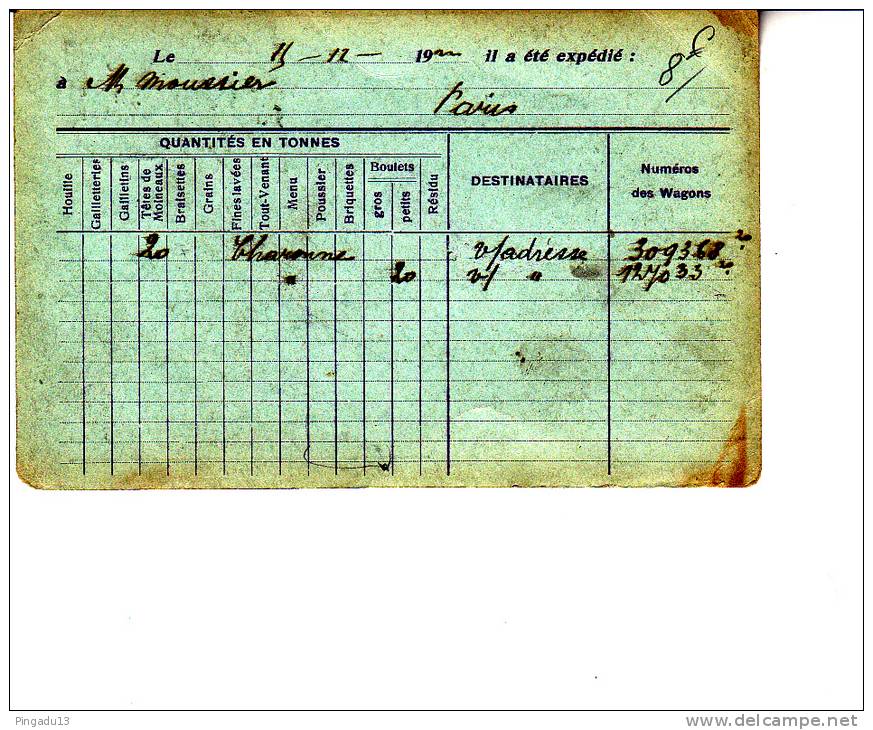 Le 15 - 12 - 19 il a été expédié : 8f
à M Moussier
Paris
QUANTITÉS EN TONNES
Houille Gailletteries Gailletins Têtes de Moineaux Braisettes Grains Fines lavées Tout-Venant Menu Poussier Briquettes Boulets gros petits Résidu DESTINATAIRES Numéros des Wagons
20 Charonne v/adresse 309368 20
" 20 v/ " 127033 20
Pingadu13 www.delcampe.net